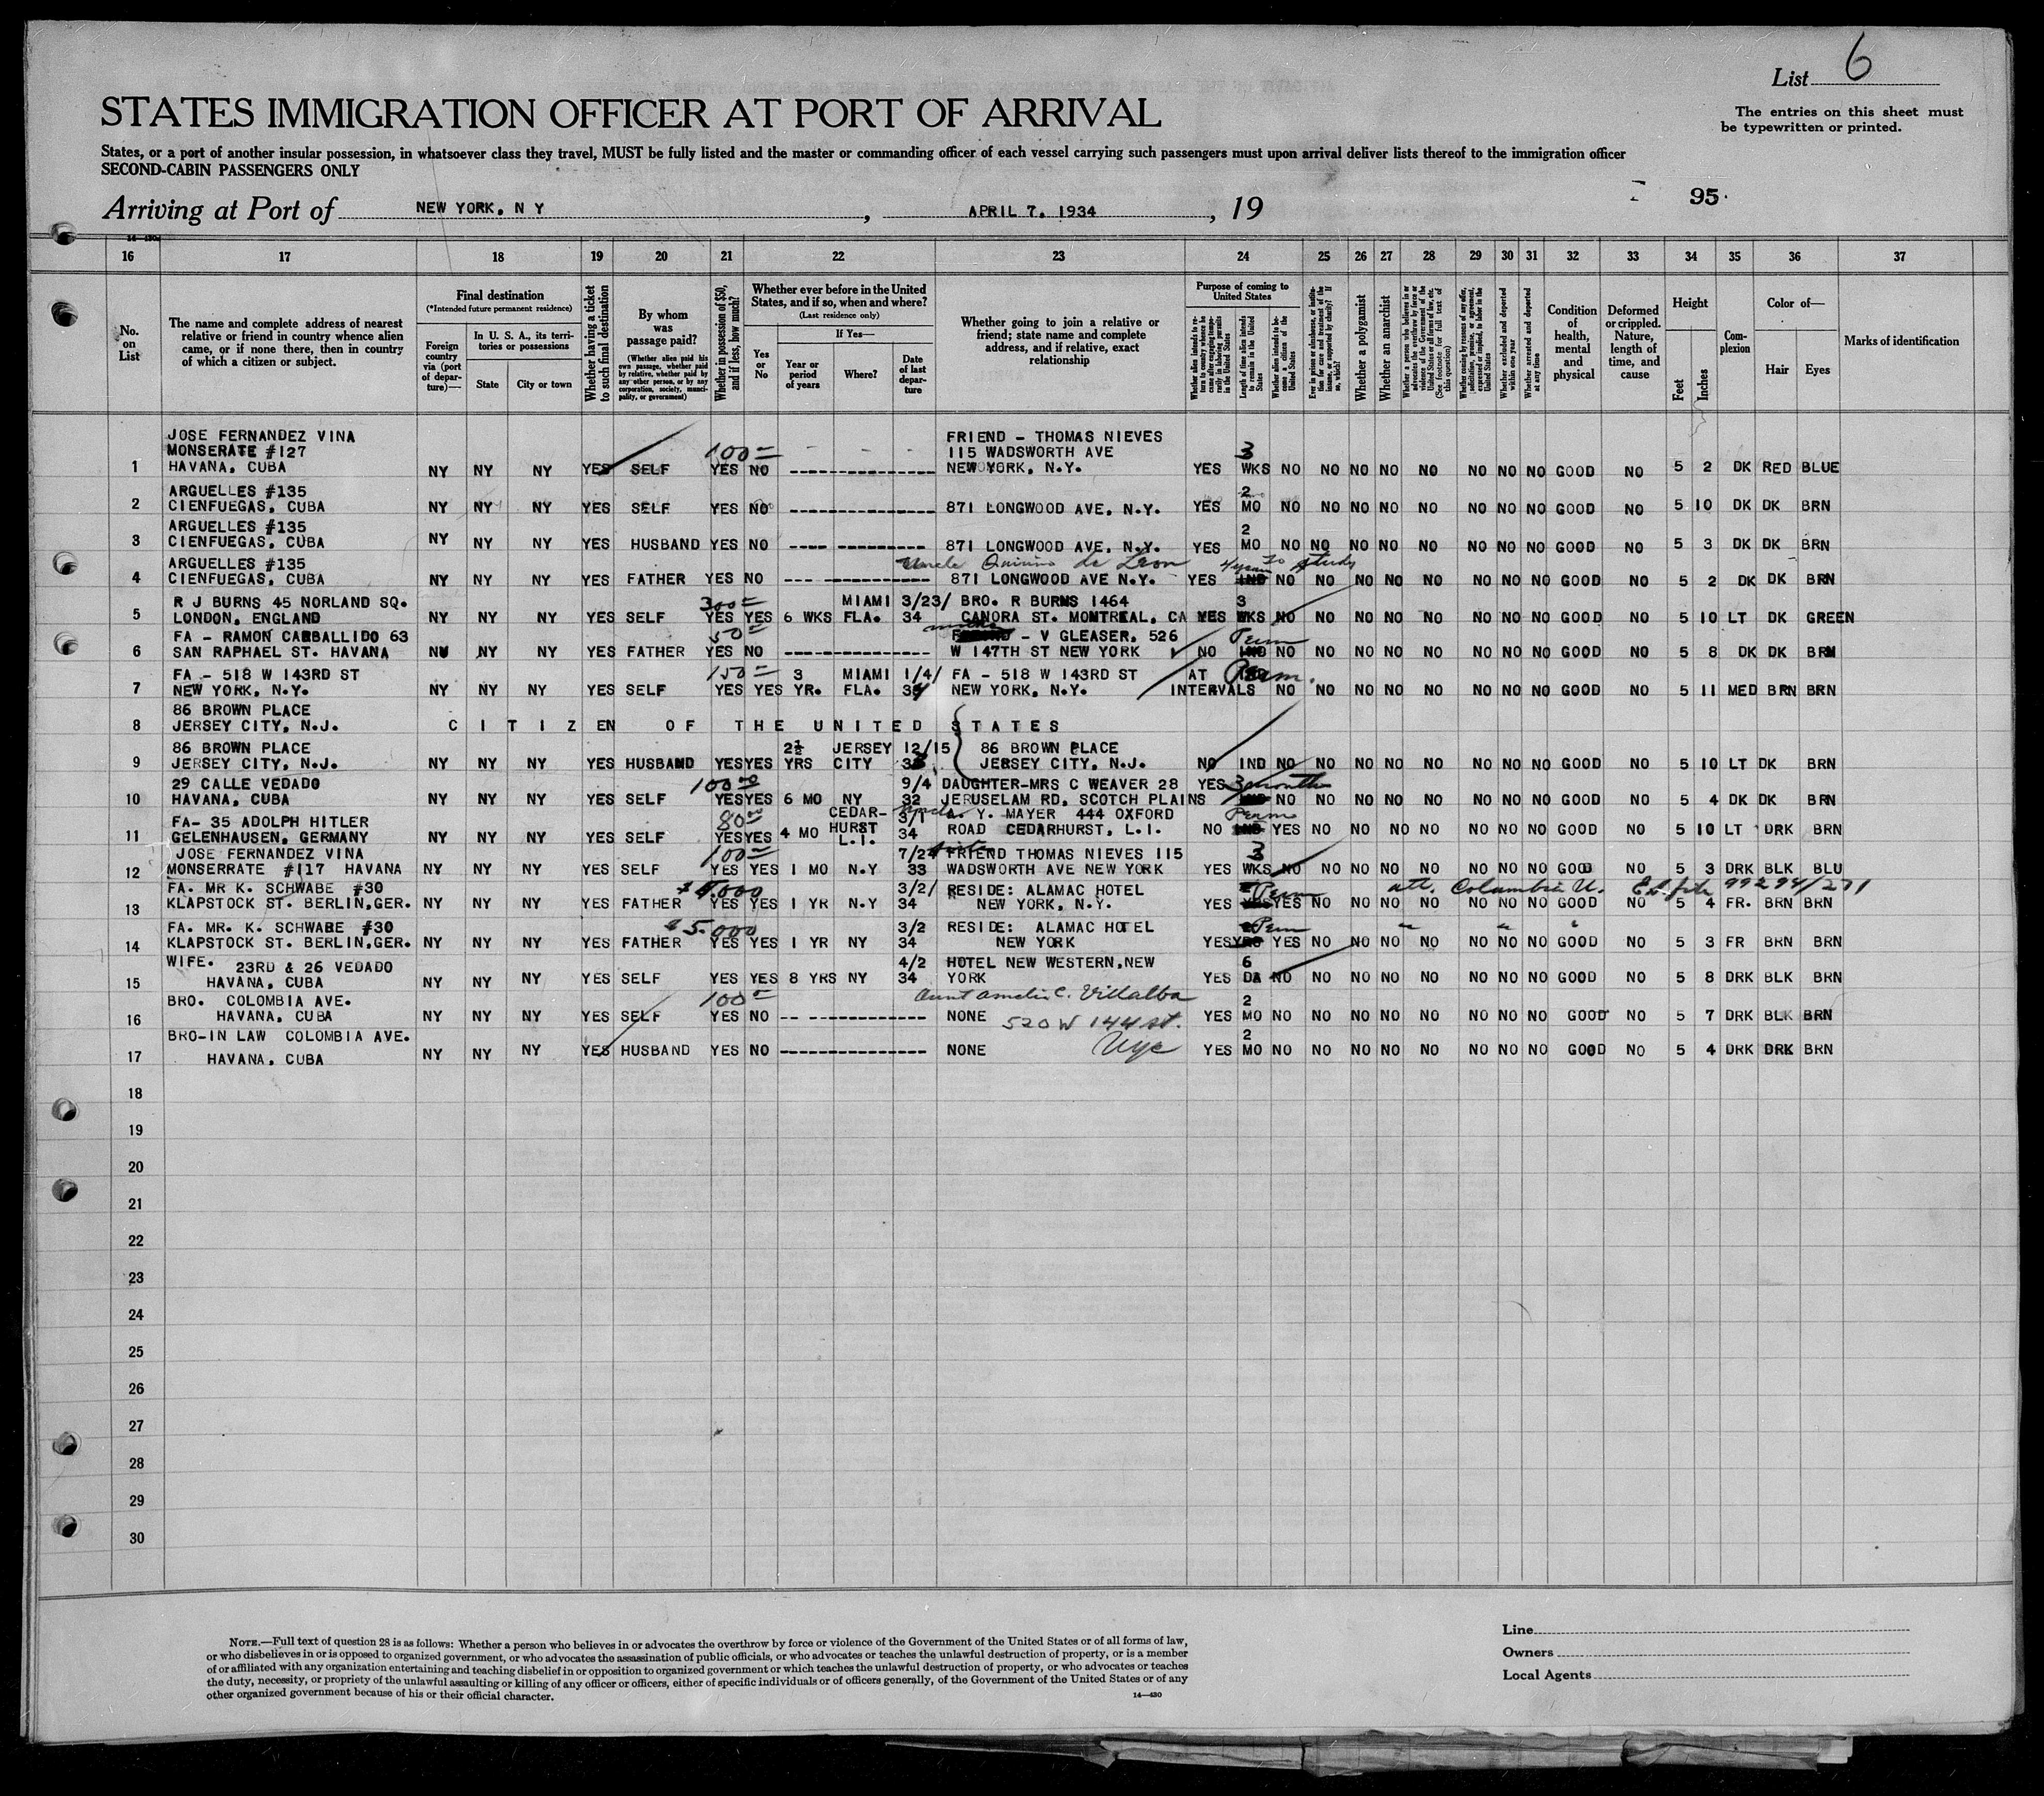 List 6
STATES IMMIGRATION OFFICER AT PORT OF ARRIVAL
The entries on this sheet must
be typewritten or printed.
States, or a port of another insular possession, in whatsoever class they travel, MUST be fully listed and the master or commanding officer of each vessel carrying such passengers must upon arrival deliver lists thereof to the immigration officer
SECOND-CABIN PASSENGERS ONLY
95
Arriving at Port of NEW YORK, N Y , APRIL 7, 1934 , 19
16 17 18 19 20 21 22 23 24 25 26 27 28 29 30 31 32 33 34 35 36 37
No. on List
The name and complete address of nearest relative or friend in country whence alien came, or if none there, then in country of which a citizen or subject.
Final destination
(*Intended future permanent residence)
Foreign country via (port of departure)—
In U. S. A., its territories or possessions
State
City or town
Whether having a ticket to such final destination
By whom was passage paid?
(Whether alien paid his own passage, whether paid by relative, whether paid by any other person, or by any corporation, society, municipality, or government)
Whether in possession of $50, and if less, how much?
Whether ever before in the United States, and if so, when and where?
(Last residence only)
Yes or No
If Yes—
Year or period of years
Where?
Date of last departure
Whether going to join a relative or friend; state name and complete address, and if relative, exact relationship
Purpose of coming to United States
Whether alien intends to return to country whence he came after engaging temporarily in laboring pursuits in the United States
Length of time alien intends to remain in the United States
Whether alien intends to become a citizen of the United States
Ever in prison or almshouse, or institution for care and treatment of the insane, or supported by charity? If so, which?
Whether a polygamist
Whether an anarchist
Whether a person who believes in or advocates the overthrow by force or violence of the Government of the United States or all forms of law, etc. (See footnote for full text of this question)
Whether coming by reason of any offer, solicitation, promise, or agreement, expressed or implied, to labor in the United States
Whether excluded and deported within one year
Whether arrested and deported at any time
Condition of health, mental and physical
Deformed or crippled. Nature, length of time, and cause
Height
Feet
Inches
Complexion
Color of—
Hair
Eyes
Marks of identification
JOSE FERNANDEZ VINA FRIEND - THOMAS NIEVES
MONSERATE #127 100= 115 WADSWORTH AVE 3
1 HAVANA, CUBA NY NY NY YES SELF YES NO ---------------- NEW YORK, N.Y. YES WKS NO NO NO NO NO NO NO NO GOOD NO 5 2 DK RED BLUE
ARGUELLES #135 2
2 CIENFUEGAS, CUBA NY NY NY YES SELF YES NO ---------------- 871 LONGWOOD AVE, N.Y. YES MO NO NO NO NO NO NO NO NO GOOD NO 5 10 DK DK BRN
ARGUELLES #135 2
3 CIENFUEGAS, CUBA NY NY NY YES HUSBAND YES NO ---- ---------- 871 LONGWOOD AVE, N.Y. YES MO NO NO NO NO NO NO NO NO GOOD NO 5 3 DK DK BRN
ARGUELLES #135 Uncle Quirino de Leon 4 years To Study
4 CIENFUEGAS, CUBA NY NY NY YES FATHER YES NO --- ----------- 871 LONGWOOD AVE N.Y. YES IND NO NO NO NO NO NO NO NO GOOD NO 5 2 DK DK BRN
R J BURNS 45 NORLAND SQ. 300= MIAMI 3/23/ BRO. R BURNS 1464 3
5 LONDON, ENGLAND NY NY NY YES SELF YES YES 6 WKS FLA. 34 CANORA ST. MONTREAL, CA YES WKS NO NO NO NO NO NO NO NO GOOD NO 5 10 LT DK GREEN
FA - RAMON CARBALLIDO 63 50= - V GLEASER, 526 Perm
6 SAN RAPHAEL ST. HAVANA NY NY NY YES FATHER YES NO ---------------- W 147TH ST NEW YORK NO IND NO NO NO NO NO NO NO NO GOOD NO 5 8 DK DK BRN
FA - 518 W 143RD ST 150= 3 MIAMI 1/4/ FA - 518 W 143RD ST AT Perm.
7 NEW YORK, N.Y. NY NY NY YES SELF YES YES YR. FLA. 34 NEW YORK, N.Y. INTERVALS NO NO NO NO NO NO NO NO GOOD NO 5 11 MED BRN BRN
86 BROWN PLACE
8 JERSEY CITY, N.J. CITIZEN OF THE UNITED STATES
86 BROWN PLACE 2½ JERSEY 12/15 86 BROWN PLACE
9 JERSEY CITY, N.J. NY NY NY YES HUSBAND YES YES YRS CITY 33 JERSEY CITY, N.J. NO IND NO NO NO NO NO NO NO NO GOOD NO 5 10 LT DK BRN
29 CALLE VEDADO 100 00 9/4 DAUGHTER-MRS C WEAVER 28 YES 3 months
10 HAVANA, CUBA NY NY NY YES SELF YES YES 6 MO NY 32 JERUSELAM RD, SCOTCH PLAINS IND NO NO NO NO NO NO NO NO GOOD NO 5 4 DK DK BRN
FA- 35 ADOLPH HITLER 80 00 CEDAR- 3/1 Y. MAYER 444 OXFORD Perm
11 GELENHAUSEN, GERMANY NY NY NY YES SELF YES YES 4 MO HURST L.I. 34 ROAD CEDARHURST, L.I. NO IND YES NO NO NO NO NO NO NO GOOD NO 5 10 LT DRK BRN
JOSE FERNANDEZ VINA 100= 7/24 FRIEND THOMAS NIEVES 115 3
12 MONSERRATE #117 HAVANA NY NY NY YES SELF YES YES 1 MO N.Y 33 WADSWORTH AVE NEW YORK YES WKS NO NO NO NO NO NO NO NO GOOD NO 5 3 DRK BLK BLU
FA. MR K. SCHWABE #30 3/2/ RESIDE: ALAMAC HOTEL Perm att. Columbia U. Ex. file 99294/271
13 KLAPSTOCK ST. BERLIN,GER. NY NY NY YES FATHER YES YES 1 YR N.Y 34 NEW YORK, N.Y. YES YRS YES NO NO NO NO NO NO NO GOOD NO 5 4 FR. BRN BRN
FA. MR. K. SCHWABE #30 $5.000 3/2 RESIDE: ALAMAC HOTEL Perm " " "
14 KLAPSTOCK ST. BERLIN,GER. NY NY NY YES FATHER YES YES 1 YR NY 34 NEW YORK YES YRS YES NO NO NO NO NO NO NO GOOD NO 5 3 FR BRN BRN
WIFE. 23RD & 26 VEDADO 4/2 HOTEL NEW WESTERN,NEW 6
15 HAVANA, CUBA NY NY NY YES SELF YES YES 8 YRS NY 34 YORK YES DA NO NO NO NO NO NO NO NO GOOD NO 5 8 DRK BLK BRN
BRO. COLOMBIA AVE. 100= Aunt Amelia C. Villalba 2
16 HAVANA, CUBA NY NY NY YES SELF YES NO -- ------------ NONE 520 W 144 st. YES MO NO NO NO NO NO NO NO NO GOOD NO 5 7 DRK BLK BRN
BRO-IN LAW COLOMBIA AVE. Nyc 2
17 HAVANA, CUBA NY NY NY YES HUSBAND YES NO ---------------- NONE YES MO NO NO NO NO NO NO NO NO GOOD NO 5 4 DRK DRK BRN
18
19
20
21
22
23
24
25
26
27
28
29
30
NOTE.—Full text of question 28 is as follows: Whether a person who believes in or advocates the overthrow by force or violence of the Government of the United States or of all forms of law,
or who disbelieves in or is opposed to organized government, or who advocates the assassination of public officials, or who advocates or teaches the unlawful destruction of property, or is a member
of or affiliated with any organization entertaining and teaching disbelief in or opposition to organized government or which teaches the unlawful destruction of property, or who advocates or teaches
the duty, necessity, or propriety of the unlawful assaulting or killing of any officer or officers, either of specific individuals or of officers generally, of the Government of the United States or of any
other organized government because of his or their official character.
14—430
Line
Owners
Local Agents